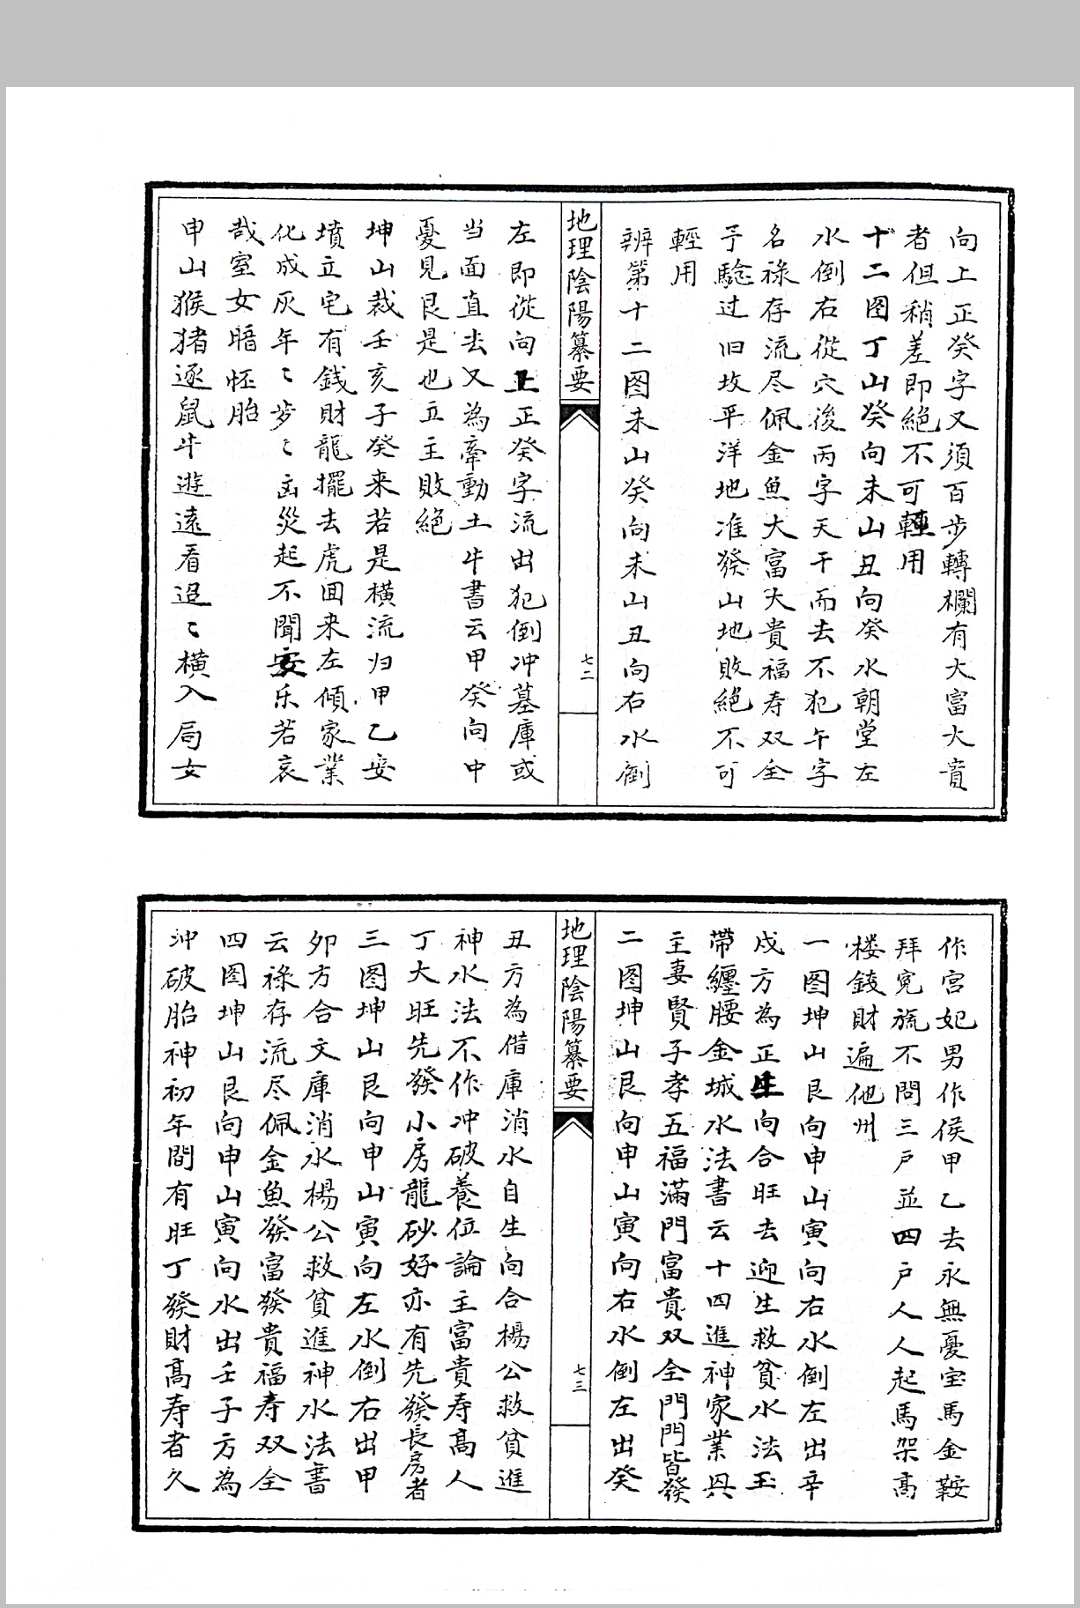 向上正癸字又須百步轉欄有大富大貴
者但稍差即絕不可輕用
十二图丁山癸向未山丑向癸水朝堂左
水倒右從穴後丙字天干而去不犯午字
名祿存流尽佩金魚大富大貴福寿双全
予騐过旧坟平洋地准發山地敗絕不可
輕用
辨第十二图未山癸向未山丑向右水倒
地理陰陽纂要
七二
左即從向上正癸字流出犯倒冲墓庫或
当面直去又為牽動土牛書云甲癸向中
憂見艮是也立主敗絕
坤山裁壬亥子癸来若是横流归甲乙安
墳立宅有錢財龍擺去虎囬来左傾家業
化成灰年〻步〻出災起不聞安乐若哀
哉室女暗怀胎
申山猴猪逐鼠牛遊遠看迢〻横入局女
作宮妃男作侯甲乙去永無憂宝馬金鞍
拜冕旒不問三戶並四戶人人起馬架高
楼錢財遍他州
一图坤山艮向申山寅向右水倒左出辛
戍方為正生向合旺去迎生救貧水法玉
帶纏腰金城水法書云十四進神家業興
主妻賢子孝五福滿門富貴双全門門皆發
二图坤山艮向申山寅向右水倒左出癸
地理陰陽纂要
七三
丑方為借庫消水自生向合楊公救貧進
神水法不作冲破養位論主富貴寿高人
丁大旺先發小房龍砂好亦有先發長房者
三图坤山艮向申山寅向左水倒右出甲
夘方合文庫消水楊公救貧進神水法書
云祿存流尽佩金魚發富發貴福寿双全
四图坤山艮向申山寅向水出壬子方為
冲破胎神初年間有旺丁發財高寿者久